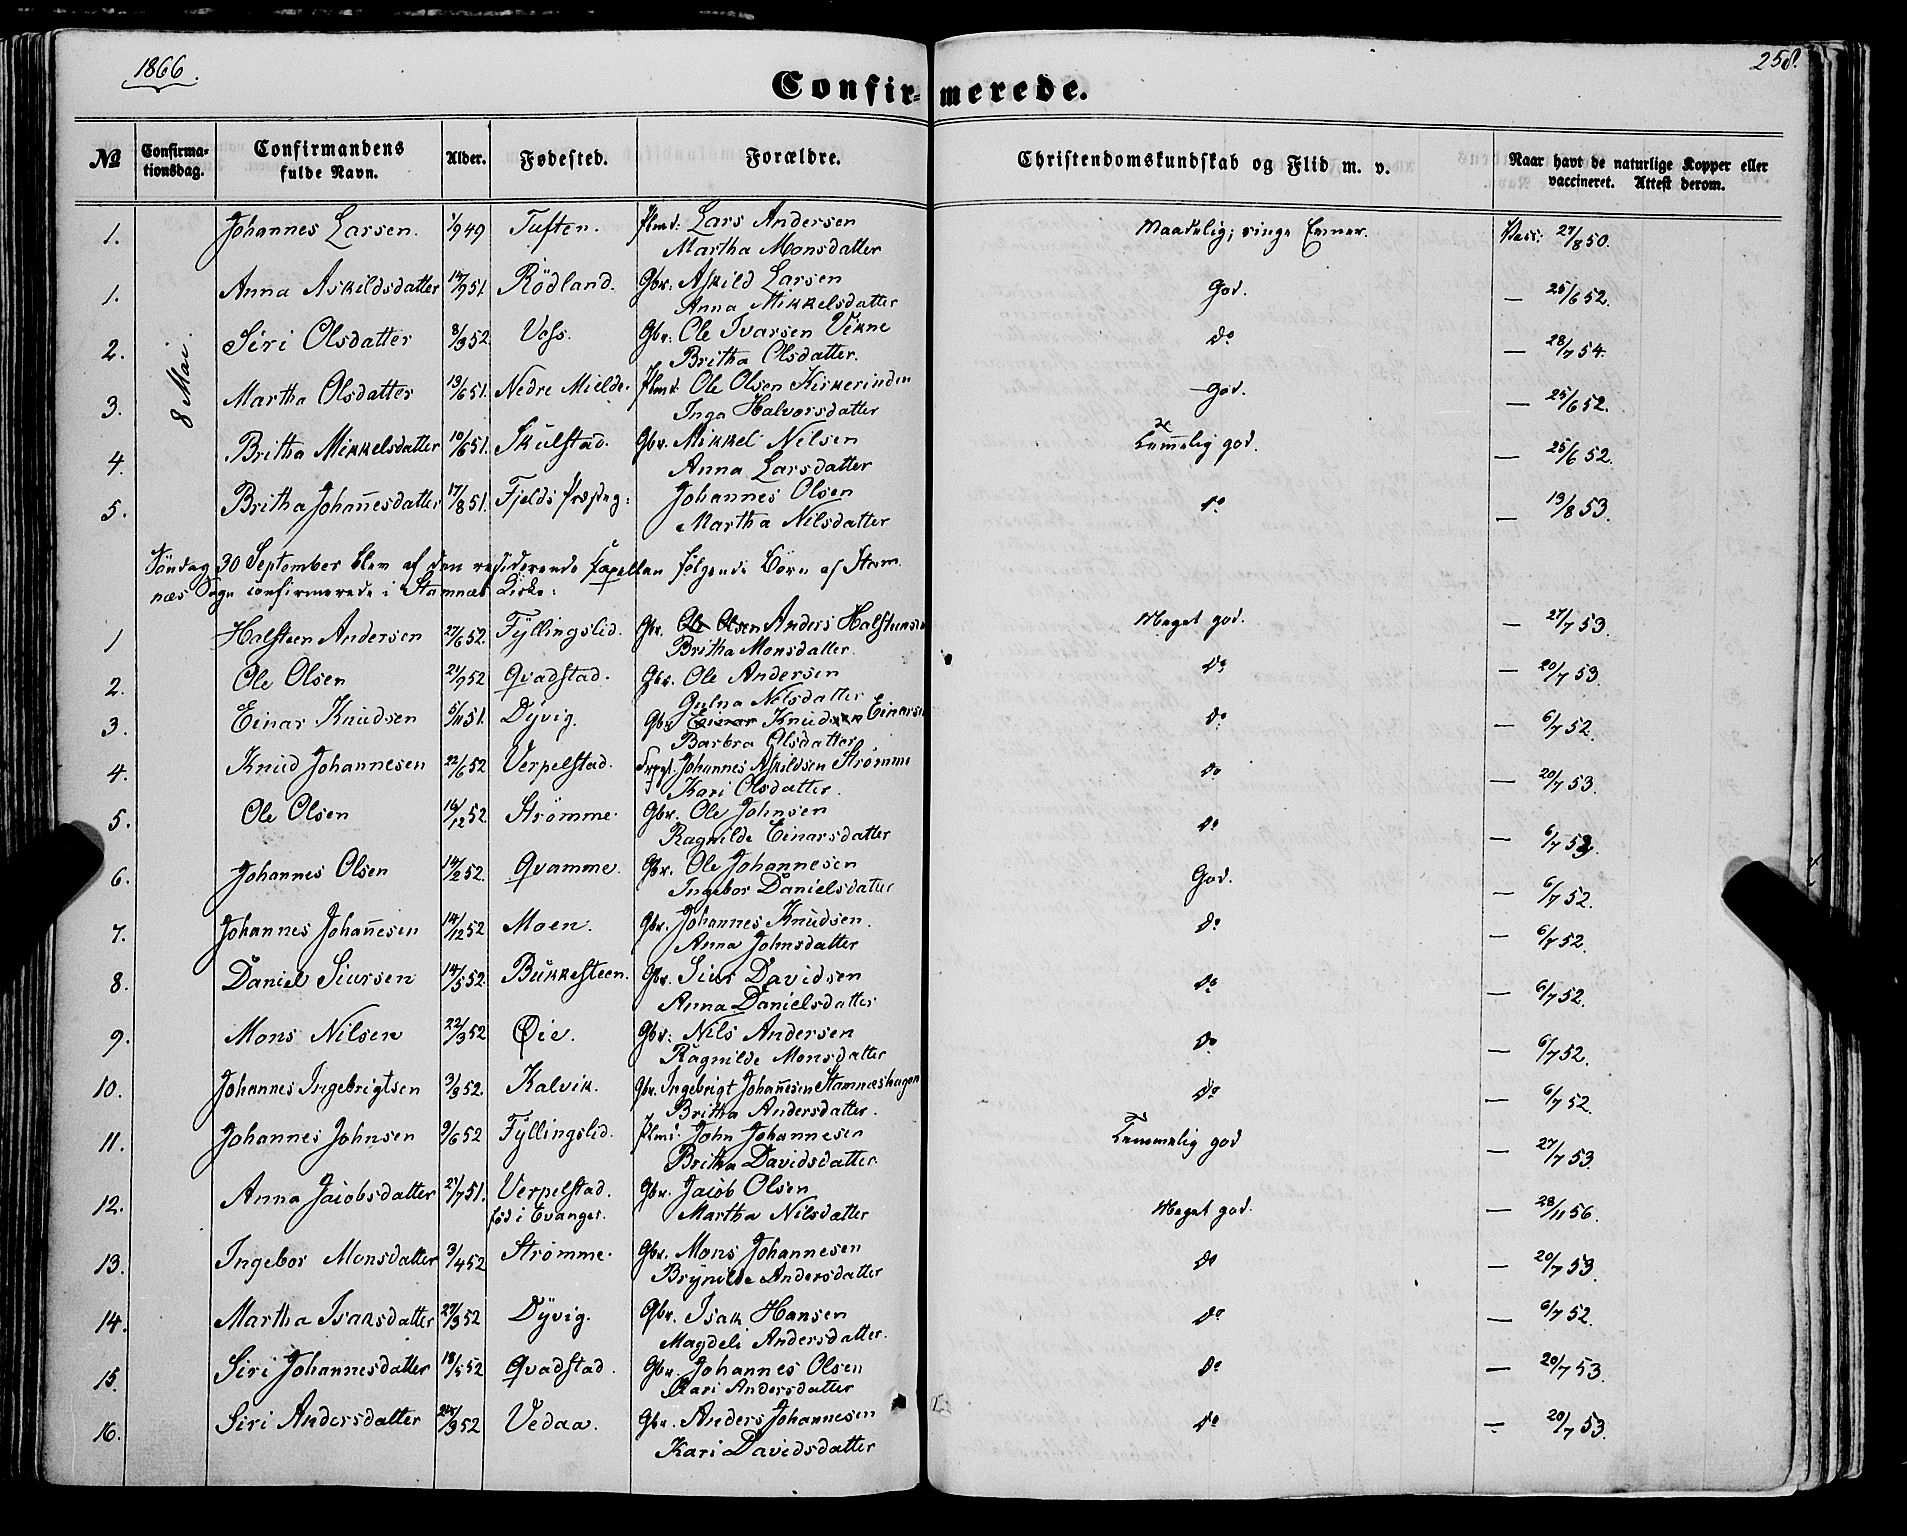 1866.
258.
Confirmerede.
№ Confirmationsdag. Confirmandens fulde Navn. Alder. Fødested. Forældre. Christendomskundskab og Flid m. v. Naar havt de naturlige Kopper eller vaccineret. Attest derom.
8 Mai
1. Johannes Larsen. 1/9 49 Tuften. Plmd: Lars Andersen Maadelig; ringe Evner. Vacc: 27/8 50.
Martha Monsdatter
1. Anna Askildsdatter 14/9 51. Rödland. Gbr: Askild Larsen God. — 25/6 52.
Anna Mikkelsdatter
2. Siri Olsdatter 8/3 52 Voss. Gbr: Ole Ivarsen Vikne do — 28/7 54.
Britha Olsdatter.
3. Martha Olsdatter 13/6 51. Nedre Mielde. Plmd: Ole Olsen Kirkerinden God. — 25/6 52.
Inga Halvorsdatter
4. Britha Mikkelsdatter 10/6 51. Skulstad. Gbr. Mikkel Nilsen Temmelig god. — 25/6 52.
Anna Larsdatter
5. Britha Johannesdatter 17/8 51. Fjelds Præsteg: Johannes Olsen do — 13/8 53.
Martha Nilsdatter
Söndag 30 September blev af den residerende Capellan følgende Börn af Stam-
næs Sogn confirmerede i Stamnæs Kirke:
1 Halsteen Andersen 27/6 52. Fyllingslid. Gbr. Ole Olsen Anders Halsteensen Meget god. — 27/7 53.
Britha Monsdatter.
2. Ole Olsen 21/9 52 Qvadstad. Gbr. Ole Andersen do — 20/7 53.
Nilsdatter
3. Einar Knudsen 5/11 51. Dyvig. Gbr. Einar Knudsen Einarsen do — 6/7 52.
Barbra Olsdatter
4. Knud Johannesen 22/6 52 Verpelstad. Johannes Askildsen Strømme do — 20/7 53.
Kari Olsdatter.
5. Ole Olsen 16/12 52 Strømme. Gbr. Ole Johnsen do — 6/7 53.
Ragnilde Einarsdatter
6. Johannes Olsen 14/2 52. Qvamme. Gbr. Ole Johannesen God. — 6/7 52.
Ingebor Danielsdatter
7. Johannes Johannesen 14/12 52 Moen. Gbr. Johannes Knudsen. do — 6/7 52.
Anna Johnsdatter
8. Daniel Siursen 14/5 52. Bukkesteen. Gbr. Siur Davidsen do — 6/7 52.
Anna Danielsdatter
9. Mons Nilsen 22/3 52 Øie. Gbr: Nils Andersen do — 6/7 52.
Ragnilde Monsdatter
10. Johannes Ingebrigtsen 3/3 52. Kalvik. Gbr. Ingebrigt Johannesen Stamneshagen do — 6/7 52.
Britha Andersdatter.
11. Johannes Johnsen 9/6 52 Fyllingslid. Plmd. John Johannesen Temmelig god — 27/7 53.
Britha Davidsdatter
12. Anna Jacobsdatter 21/7 51. Verpelstad. Gbr. Jacob Olsen Meget god. — 28/11 56.
föd i Evanger. Martha Nilsdatter
13. Ingebor Monsdatter 3/4 52 Strømme. Gbr. Mons Johannesen do — 20/7 53.
Brynilde Andersdatter
14. Martha Isaksdatter 27/3 52 Dyvig. Gbr. Isak Hansen do — 6/7 52.
Magdeli Andersdatter.
15. Siri Johannesdatter 18/5 52 Qvadstad. Gbr Johannes Olsen do — 20/7 53.
Kari Andersdatter
16. Siri Andersdatter 24/3 52 Vedaa. Gbr. Anders Johannesen do — 20/7 53.
Kari Davidsdatter